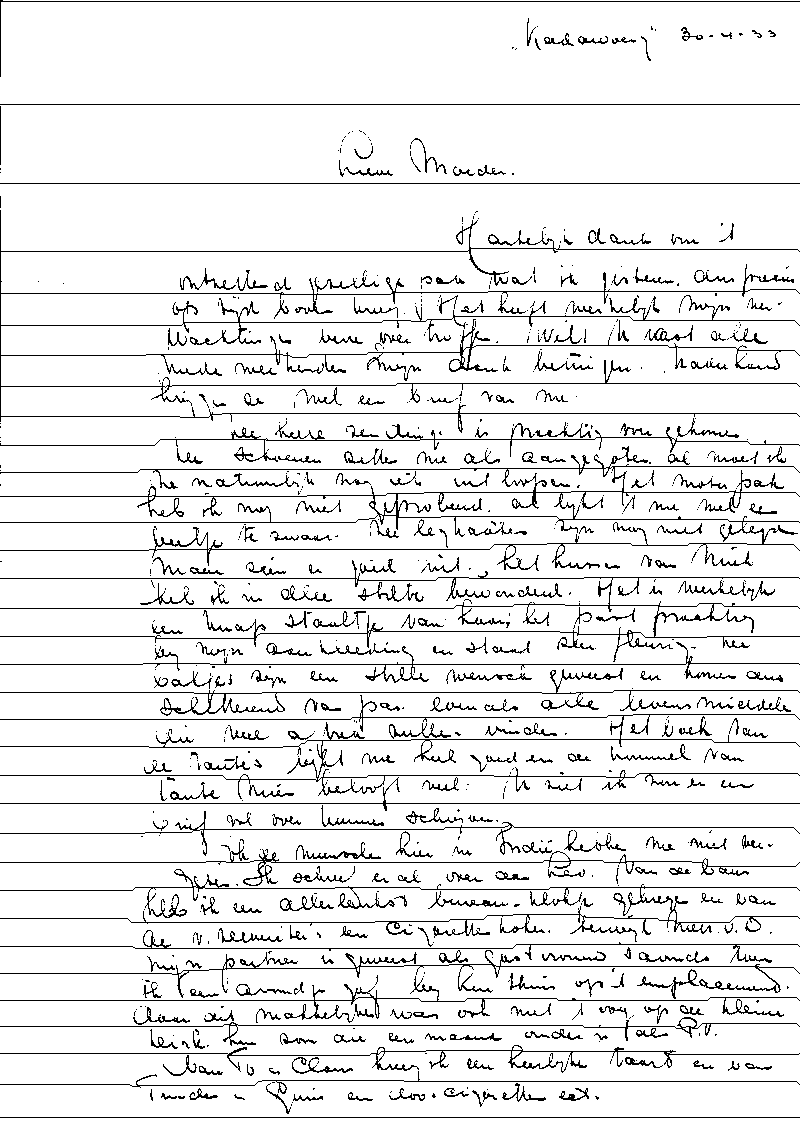 "Kadawoeng" 30-4-33
Lieve Moeder.
Hartelijk dank voor 't
ontzettend gezellige pak wat ik gisteren, dus precies
op tijd boven kreeg. Het heeft werkelijk mijn ver-
wachtingen verre overtroffen. Wilt U vast alle
mede werkenden mijn dank betuigen. Naderhand
krijgen ze wel een brief van me.
De heele zending is prachtig over gekomen.
De schoenen zitten me als aangegoten al moet ik
ze natuurlijk nog iets uit loopen. Het motorpak
heb ik nog niet geprobeerd, al lijkt 't me wel een
beetje te zwaar. De zijn nog niet
maar zien er goed uit. Het kussen van Miek
heb ik in alle stilte bewonderd. Het is werkelijk
een knap staaltje van haar, het past prachtig
bij mijn aankleeding en staat zeer fleurig. De
zijn een stille wensch geweest en komen dus
schitterend van pas evenals alle levensmiddelen
die veel aftrek zullen vinden. Het boek van
de Tante's lijkt me heel goed en de trommel van
Tante Mien belooft veel. U ziet ik zou er een
brief vol over kunnen schrijven.
Ook de menschen hier in Indië hebben me niet ver-
geten. Ik schreef er al over aan . Van de baas
heb ik een allerleukst bureau-klokje gekregen en van
de v. een cigarettenkoker. terwijl Mevr. v. D.
mijn partner is geweest als gastvrouw 's avonds toen
ik een avondje gaf bij hen thuis op 't emplacement.
Daar dit makkelijker was ook met 't oog op de kleine
Dirk. hun zoon die een maand ouder is dan P.V.
Van To en Claas kreeg ik een heerlijke taart en van
Truus en en div. cigaretten ect.